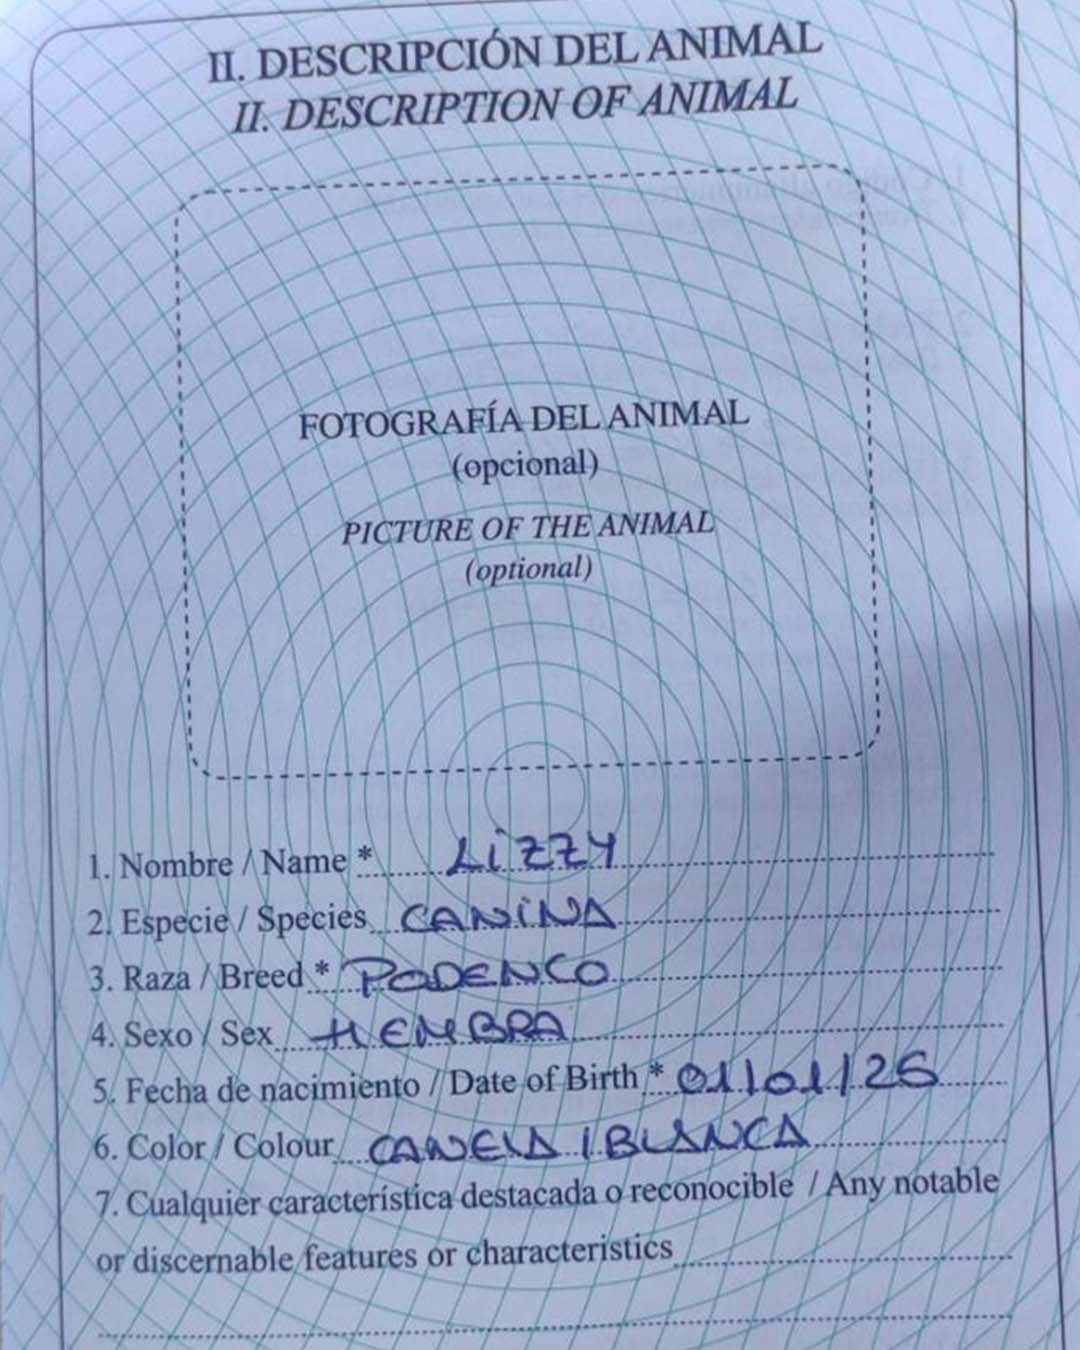 II. DESCRIPCIÓN DEL ANIMAL
II. DESCRIPTION OF ANIMAL
FOTOGRAFÍA DEL ANIMAL
(opcional)
PICTURE OF THE ANIMAL
(optional)
1. Nombre / Name * LiZZY
2. Especie / Species CANiNA
3. Raza / Breed * PODENCO
4. Sexo / Sex HEMBRA
5. Fecha de nacimiento / Date of Birth * 01/01/25
6. Color / Colour CANELA / BLANCA
7. Cualquier característica destacada o reconocible / Any notable
or discernable features or characteristics